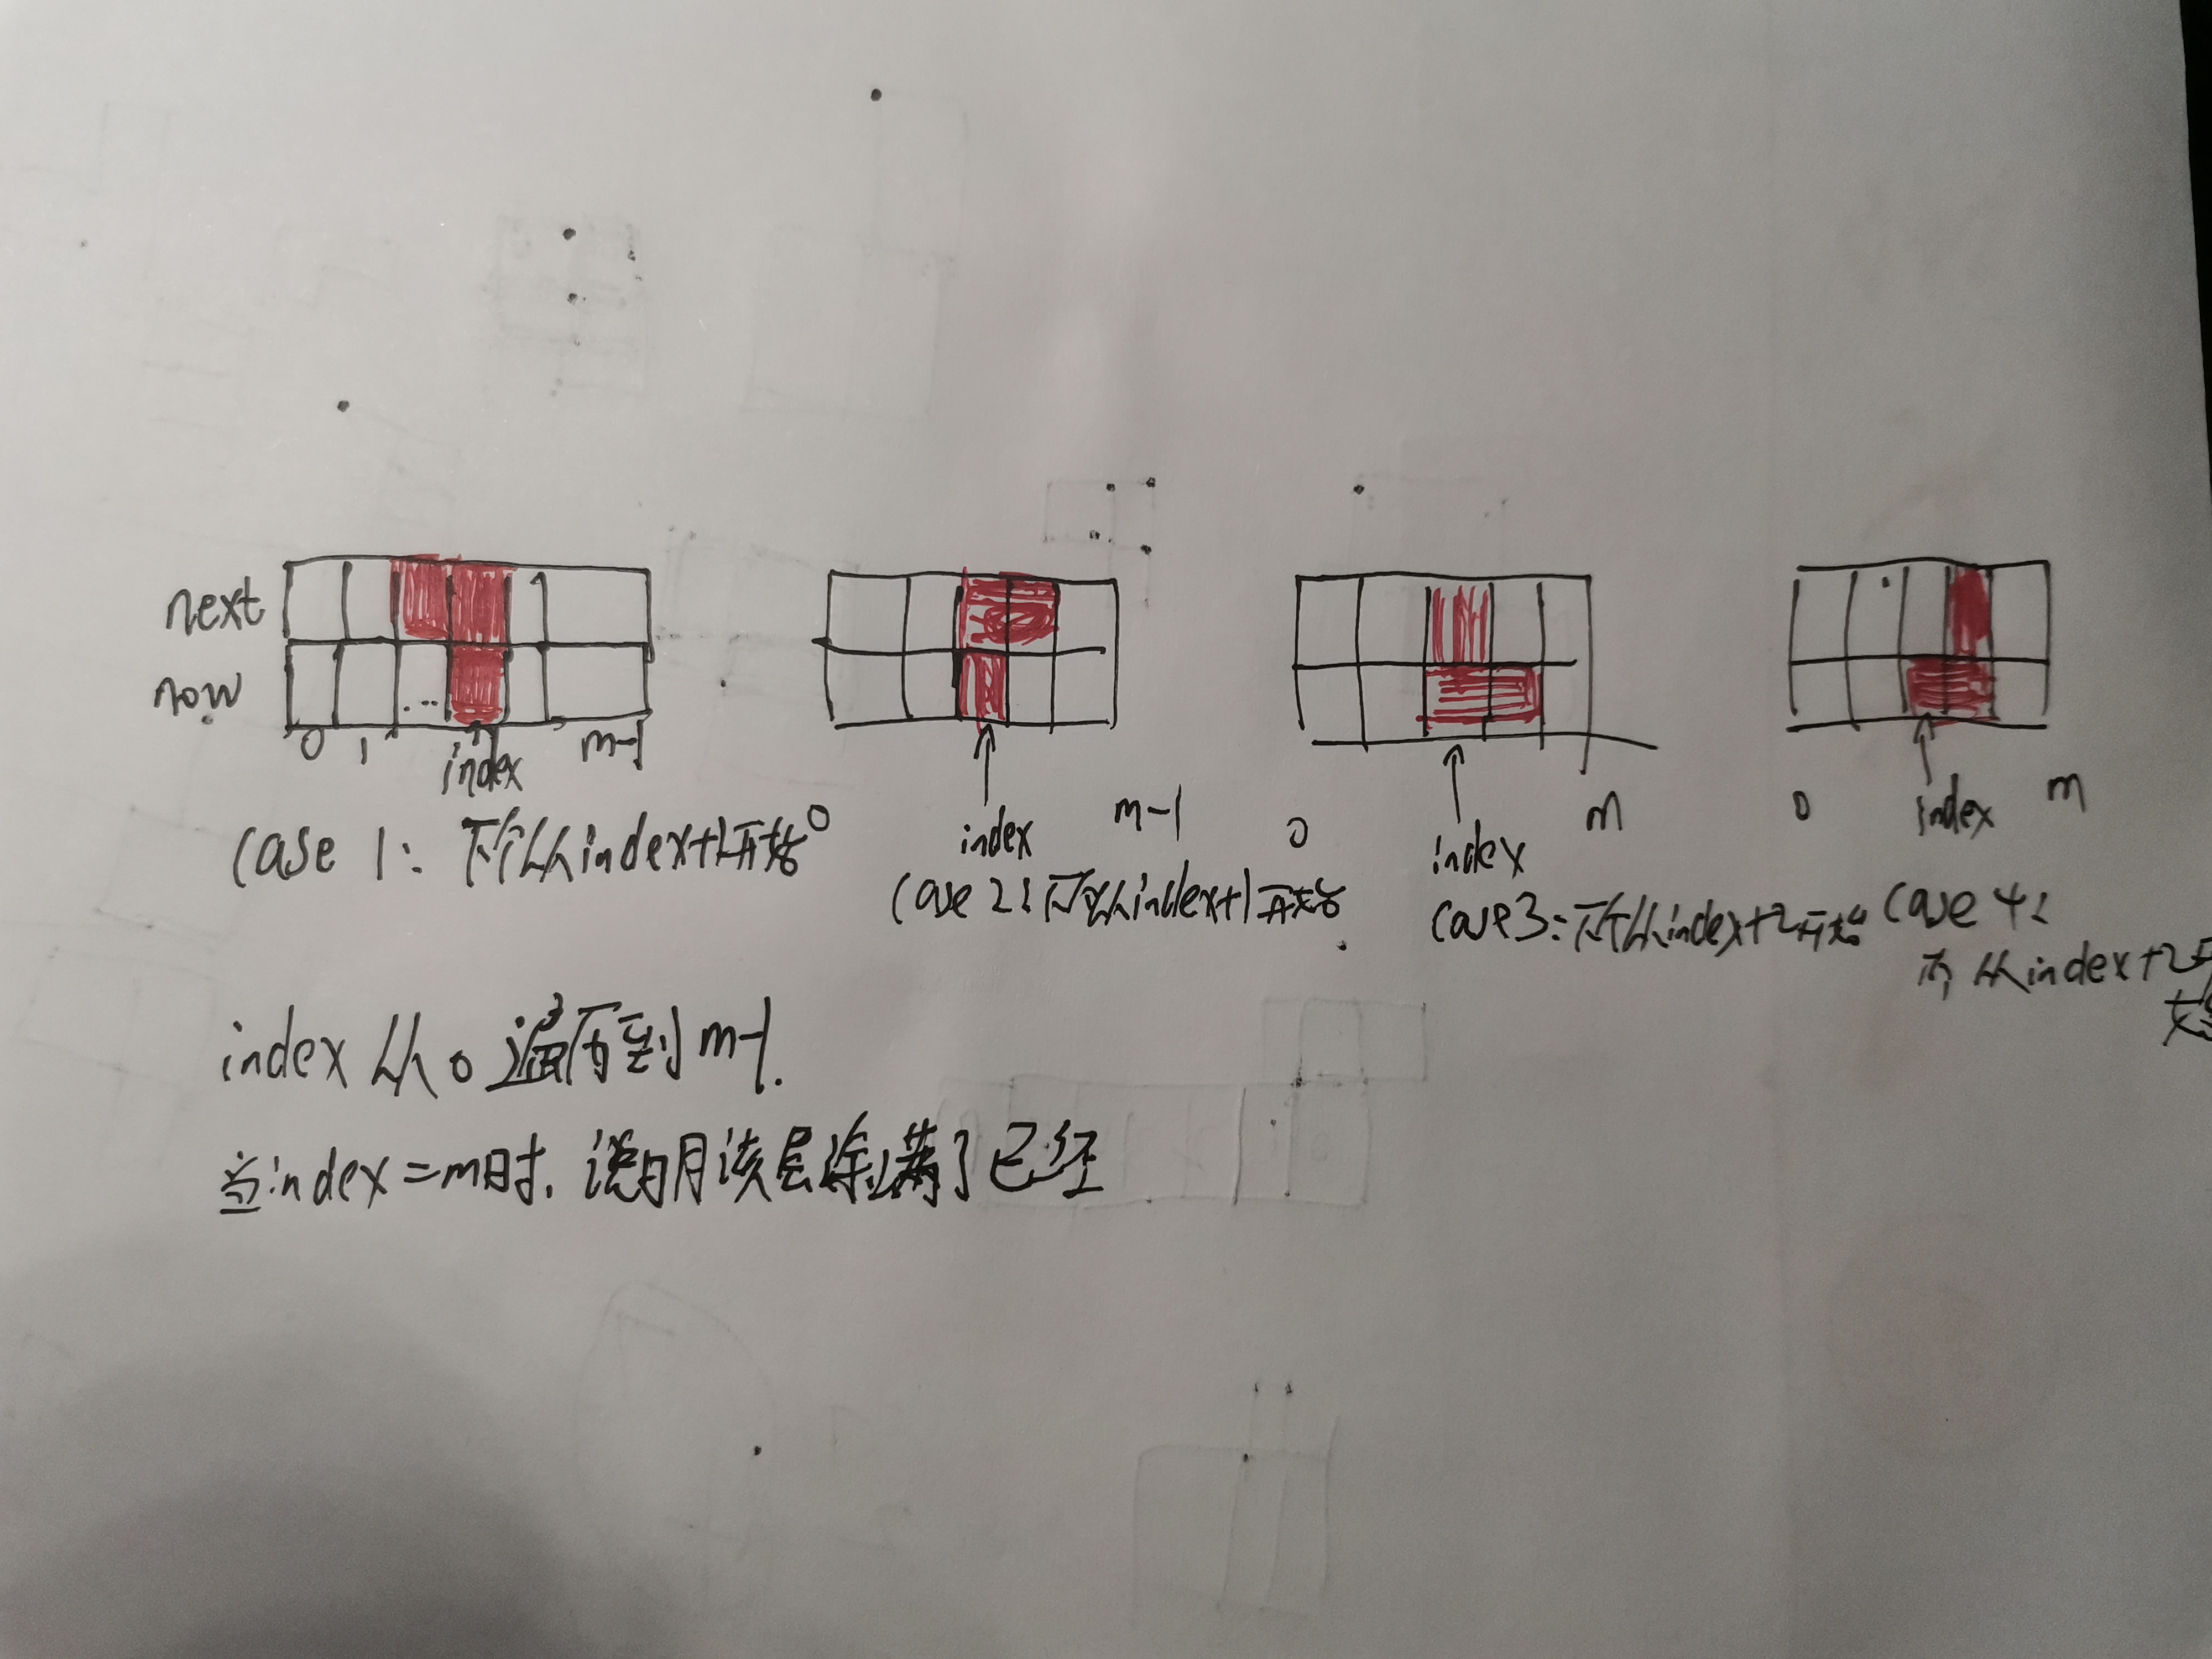 next
now
...
0 1 index m-1
index m-1
0 index m
0 index m
0
case 1: 下个从index+1开始
case 2: 下次从index+1开始
case3: 下个从index+2开始
case 4:
下个从index+2开始
index 从 0 遍历到 m-1.
当index=m时. 说明该层涂满了已经